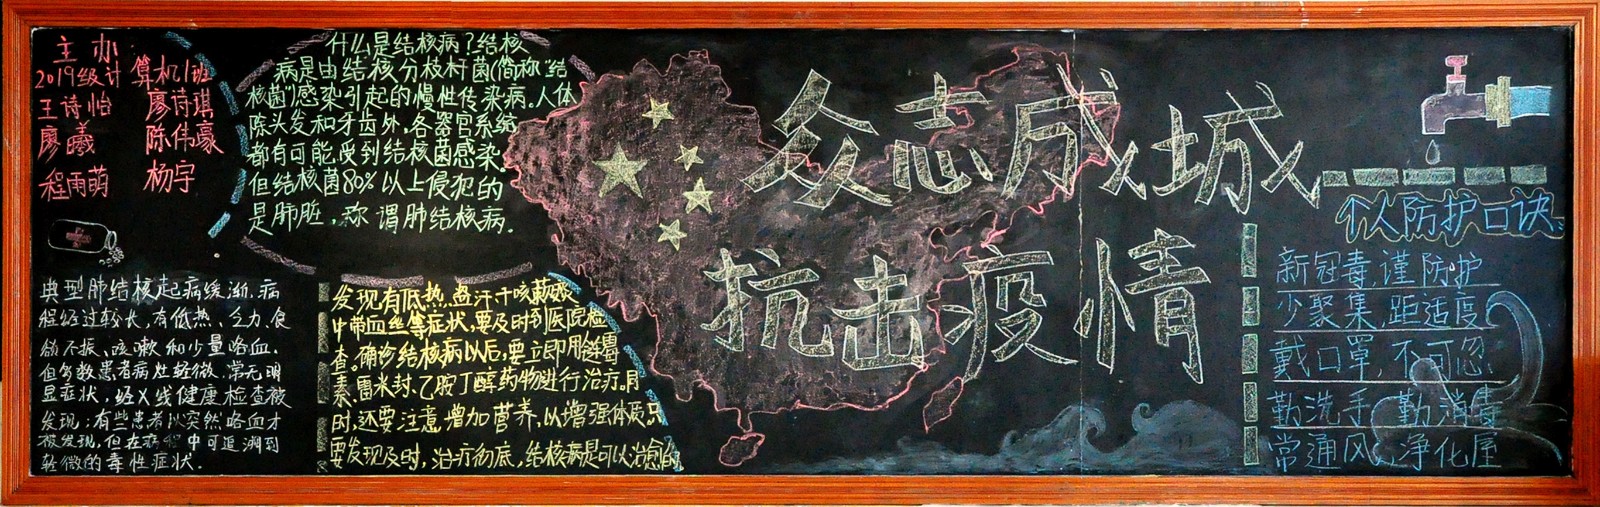 主办
2019级计算机1班
王诗怡 廖诗琪
廖曦 陈伟豪
程雨萌 杨宇
什么是结核病?结核
病是由结核分枝杆菌(简称"结
核菌")感染引起的慢性传染病。人体
除头发和牙齿外,各器官系统
都有可能受到结核菌感染。
但结核菌80%以上侵犯的
是肺脏,称谓肺结核病。
典型肺结核起病缓渐,病
程经过较长,有低热、乏力、食
欲不振、咳嗽和少量咯血。
但多数患者病灶轻微,常无明
显症状,经X线健康检查被
发现;有些患者以突然咯血才
被发现,但在病程中可追溯到
轻微的毒性症状。
发现有低热、盗汗、干咳
中带血丝等症状,要及时到医院检
查。确诊结核病以后,要立即用链霉
素、雷米封、乙胺丁醇药物进行治疗。同
时,还要注意增加营养,以增强体质。只
要发现及时,治疗彻底,结核病是可以治愈的
众志成城
抗击疫情
个人防护口诀
新冠毒,谨防护
少聚集,距适度
戴口罩,不可忽
勤洗手,勤消毒
常通风,净化屋